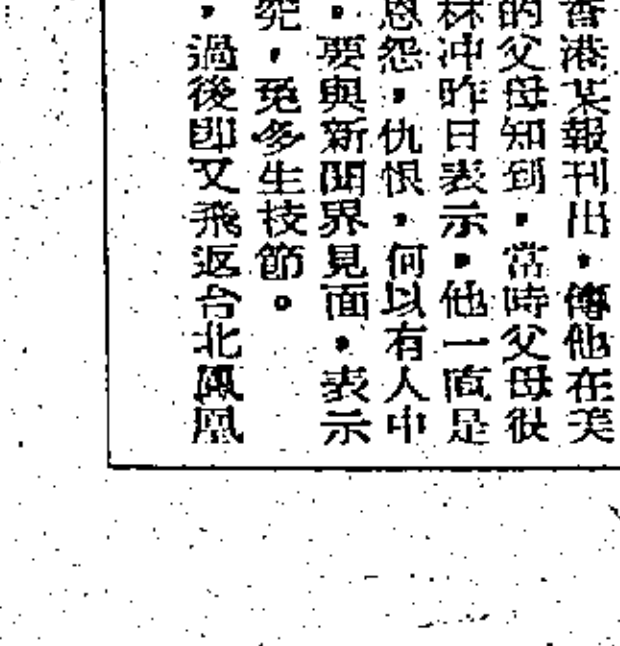 香港某報刊出，傳他在美
的父母知到，當時父母很
林冲昨日表示，他一直是
恩怨，仇恨，何以有人中
，要與新聞界見面，表示
究，免多生技節。
，過後即又飛返台北鳳凰